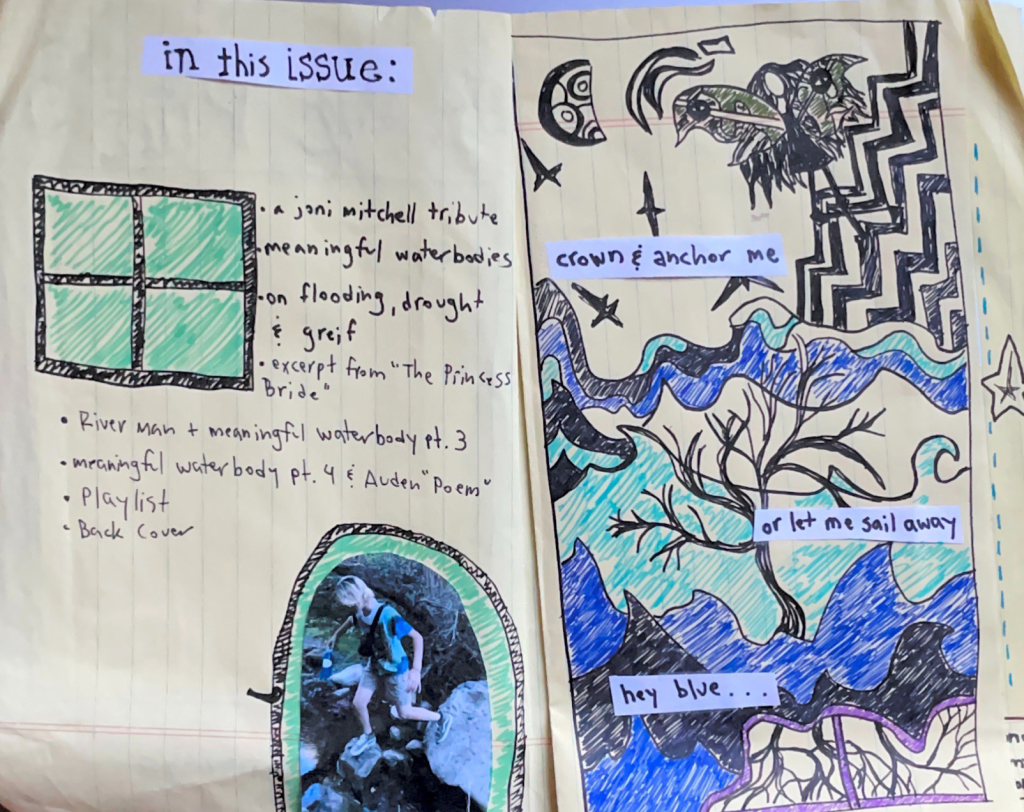 in this issue:
· a joni mitchell tribute
· meaningful waterbodies
· on flooding, drought
& greif
· excerpt from "The Princess
Bride"
• River Man + meaningful waterbody pt. 3
• meaningful waterbody pt. 4 & Auden "Poem"
• Playlist
• Back Cover
crown & anchor me
or let me sail away
hey blue...